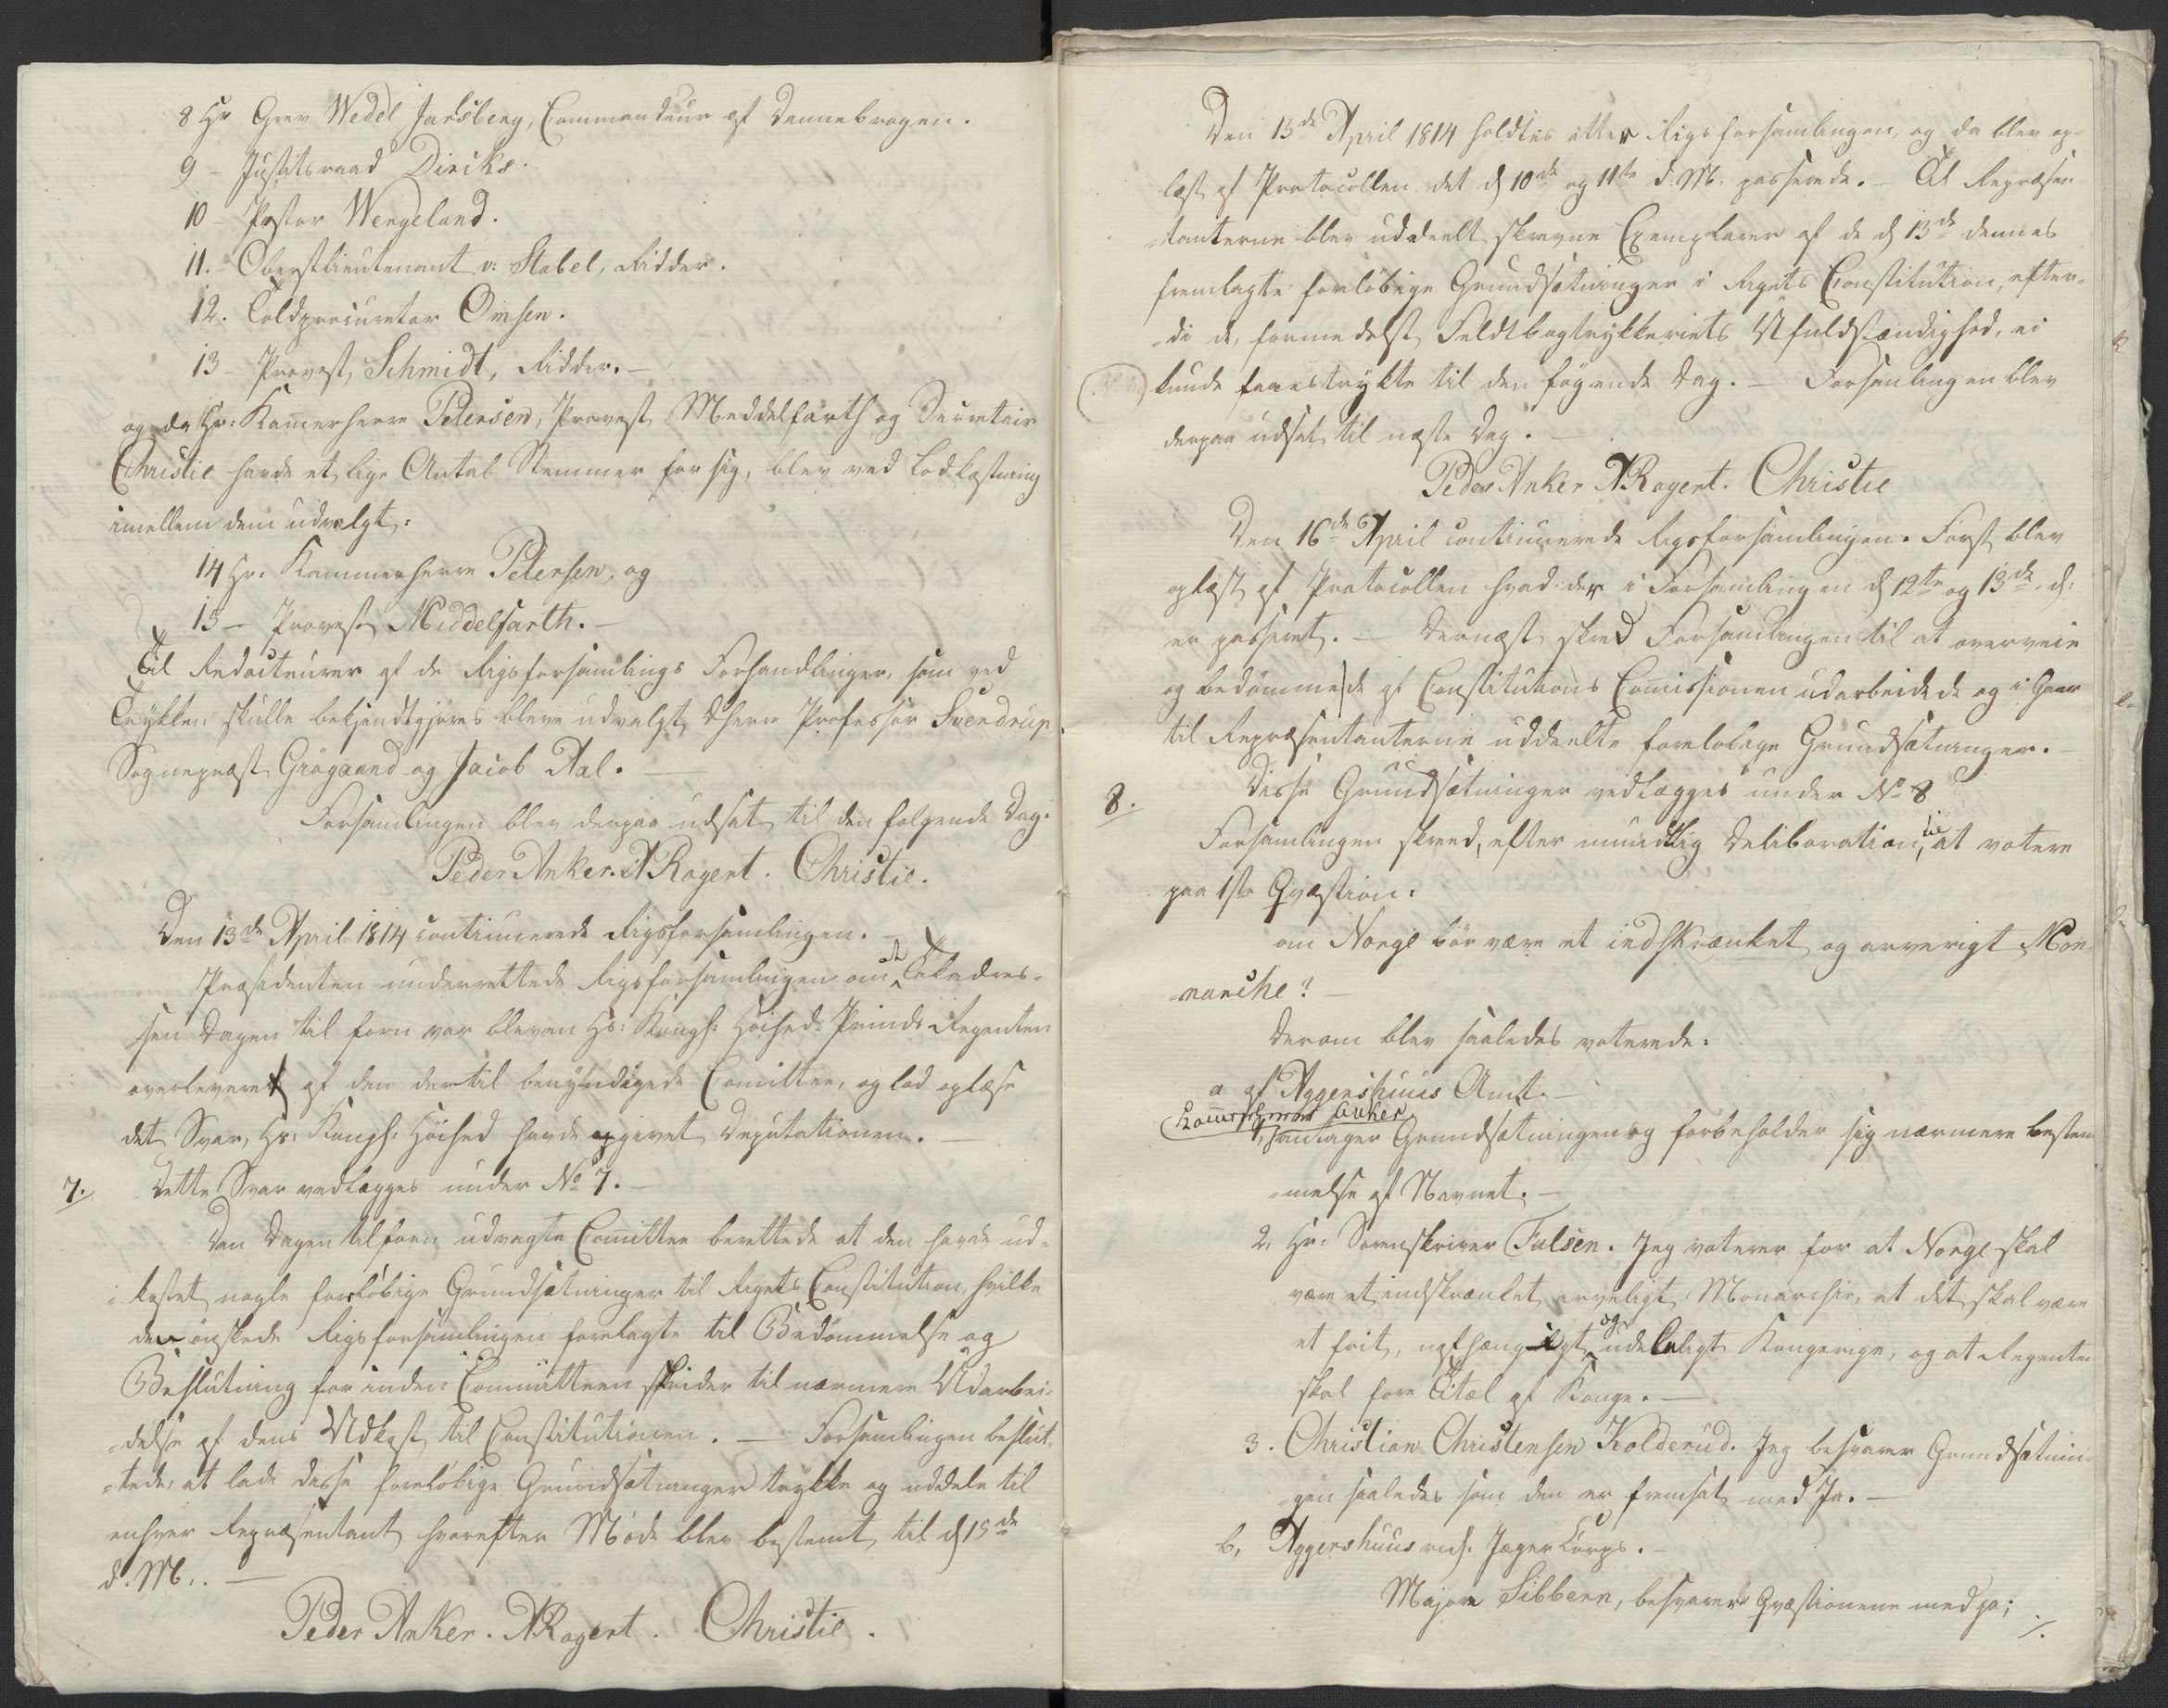 8 Hr Grev Wedel Jarlsberg, Commandeur af Dannebrogen.
9 - Justitsraad Diriks.
10 - Pastor Wergeland.
11. - Oberstlieutenant v: Stabel, Ridder.
12. Toldprocureur Omsen.
13 - Provst, Schmidt, Ridder. -
og da Hr: Kam̄erherre Petersen, Provst Middelfarth og Secretair
Christie havde et lige Antal Stemmer for sig, blev ved Lodkastning
imellem dem udvalgt:
14 Hr: Kammerherre Petersen, og
15 - Provst Middelfarth. -
Til Redacteurer af de Rigsforsamlings Forhandlinger, som ved
Trykken skulle bekjendtgjøres bleve udvalgt Dherrer Professor Sverdrup
Sognepræst Grøgaard og Jacob Aal. -
Forsamlingen blev derpaa udsat til den følgende Dag.
Peder Anker. A Rogert. Christie.
Den 13de April 1814 continuerede Rigsforsamlingen. -
Præsidenten underrettede Rigsforsamlingen om at Takadres-
sen Dagen til forn var bleven Hs: Kongl: Høihed Prinds Regenten
overleveret af den dertil bemyndigede Comittee, og lod oplæse
det Svar, Hs: Kongl: Høihed havde givet Deputationen. -
7. Dette Svar vedlægges under No 7. -
Den Dagen tilforn udvalgte Com̄ittee berettede at den havde ud-
kastet nogle foreløbige Grundsætninger til Rigets Constitution, hvilke
den ønskede Rigsforsamlingen forelagte til Bedømmelse og
Beslutning forinden Committeen skrider til nærmere Udarbei-
-delse af dens Udkast til Constitutionen. - Forsamlingen beslut-
-tede, at lade disse foreløbige Grundsætninger trykke og uddele til
enhver Repræsentant hvorefter Møde blev bestemt til d 15de
d. M.. -
Peder Anker. A Rogert. Christie.
Den 15de April 1814 holdtes atter Rigsforsamlingen, og da blev op-
læst af Protocollen det d 10de og 11te d: M. passerede. - Til Repræsen-
-tanterne blev uddeelt skrevne Exemplarer af de d 13de dennes
fremlagte foreløbige Grundsætninger i Rigets Constitution, efter-
-di de, formedelst Feldtbogtrykkeriets Ufuldstændighed, ei
kunde faaes trykte til den følgende Dag. - Forsamlingen blev
derpaa udsat til næste Dag. -
Peder Anker A Rogert. Christie
Den 16de April continuerede Rigsforsamlingen. Først blev
oplæst af Protocollen hvad der i Forsamlingen d 12te og 13de d:
er passeret. - Dernæst skred Forsamlingen til at overveie
og bedømme de af Constitutions Com̄issionen udarbeidede og i Gaar
til Repræsentanterne uddeelte foreløbige Grundsætninger. -
8. Disse Grundsætninger vedlægges under No 8
Forsamlingen skreed, efter mundtlig Deliberation, til at votere
paa 1ste Qvæstion:
om Norge bør være et indskrænket og arveligt Mon-
-narchie? -
Derom blev saaledes voterede:
a af Aggershuus Amt. -
Kam̄erherre Anker
1, antager Grundsætningen og forbeholder sig nærmere bestem
-melse af Navnet. -
2, Hr: Sorenskriver Falsen. Jeg voterer for at Norge skal
være et indskrænket arveligt Monarchie, at det skal være
et frit, uafhængigt og udeleligt Kongerige, og at Regenten
skal føre Titel af Konge. -
3. Christian Christensen Kolderud. Jeg besvarer Grundsætnin-
-gen saaledes som den er fremsat med Ja. -
b, Aggershuus rid. Jæger Corps. -
Major Sibbern, besvarede Qvæstionene med ja;